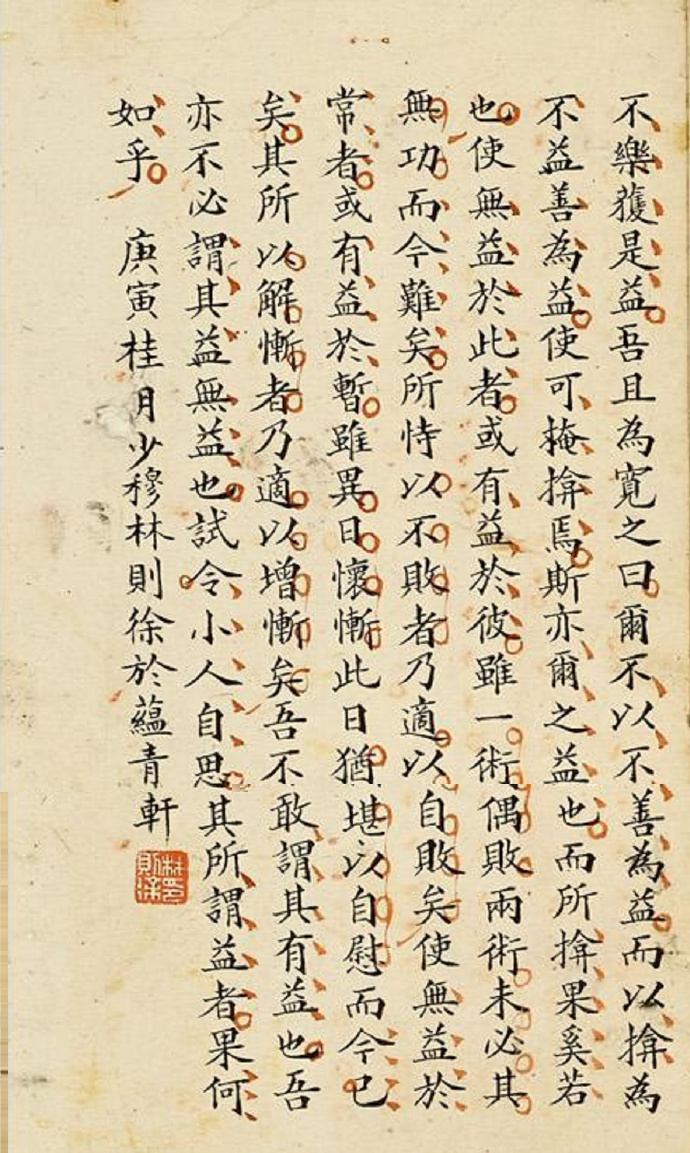 不樂獲是益吾且為寬之曰爾不以不善為益而以揜為
不益善為益使可掩揜焉斯亦爾之益也而所揜果奚若
也使無益於此者或有益於彼雖一術偶敗兩術未必其
無功而今難矣所恃以不敗者乃適以自敗矣使無益於
常者或有益於暫雖異日懷慚此日猶堪以自慰而今已
矣其所以解慚者乃適以增慚矣吾不敢謂其有益也吾
亦不必謂其益無益也試令小人自思其所謂益者果何
如乎 庚寅桂月少穆林則徐於蘊青軒
林則徐印